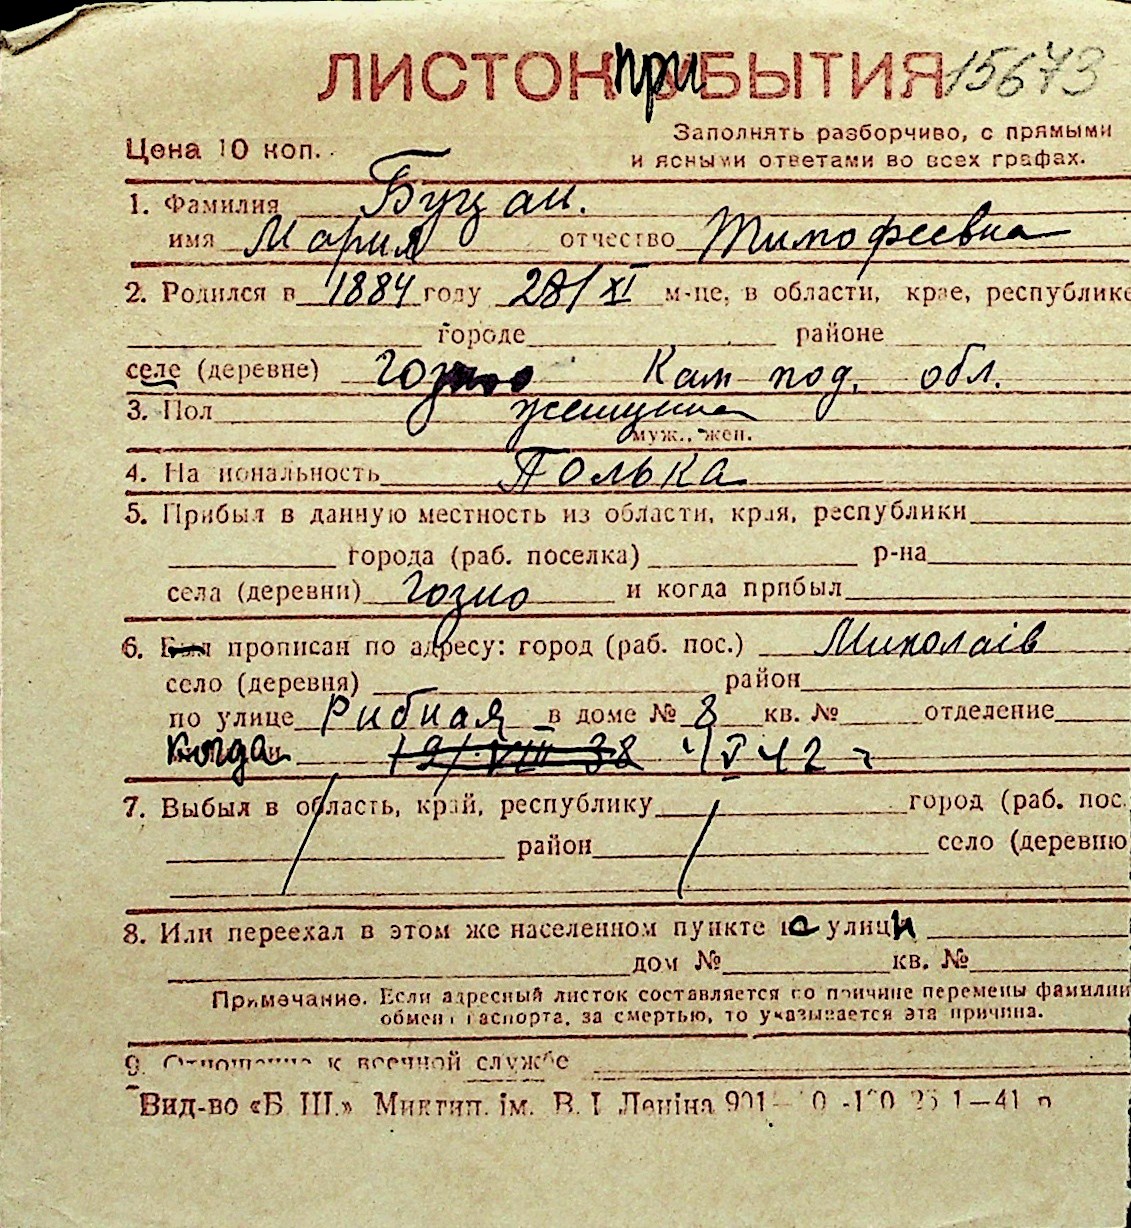 ЛИСТОК ПРИБЫТИЯ 15673
Цена 10 коп.
Заполнять разборчиво, с прямыми
и ясными ответами во всех графах.
1. Фамилия Буцан.
имя Мария отчество Тимофеевна
2. Родился в 1884 году 28/XI м-це, в области, крае, республике
городе районе
селе (деревне) Гозно Кам под. обл.
3. Пол женщина
муж., жен.
4. Национальность Полька
5. Прибыл в данную местность из области, края, республики
города (раб. поселка) р-на
села (деревни) Гозно и когда прибыл
6. Был прописан по адресу: город (раб. пос.) Миколаів
село (деревня) район
по улице Рибная в доме № 8 кв. № отделение
Когда 19/VIII 38 4 V 42 г
7. Выбыл в область, край, республику город (раб. пос.
район село (деревню
8. Или переехал в этом же населенном пункте с улицы
дом № кв. №
Примечание. Если адресный листок составляется по причине перемены фамилии
обмена паспорта, за смертью, то указывается эта причина.
9. Отношение к военной службе
Вид-во «Б. Ш.» Миктип. ім. В. І. Леніна 1—41